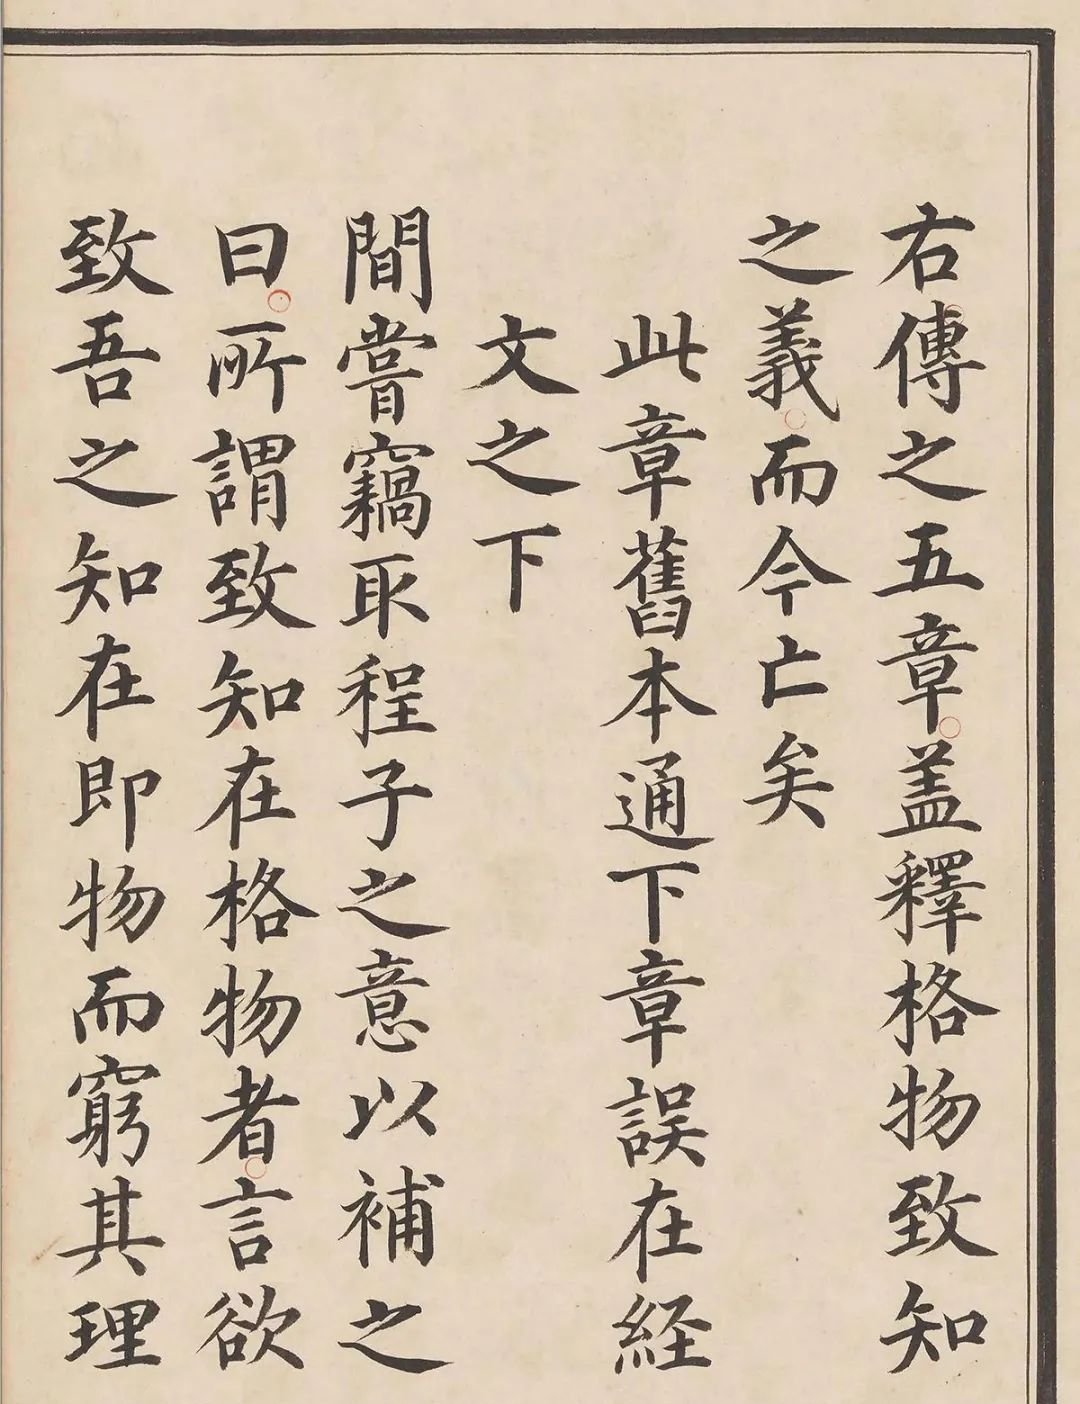 右傳之五章盖釋格物致知
之義而今亡矣
此章舊本通下章誤在経
文之下
間嘗竊取程子之意以補之
曰所謂致知在格物者言欲
致吾之知在即物而窮其理